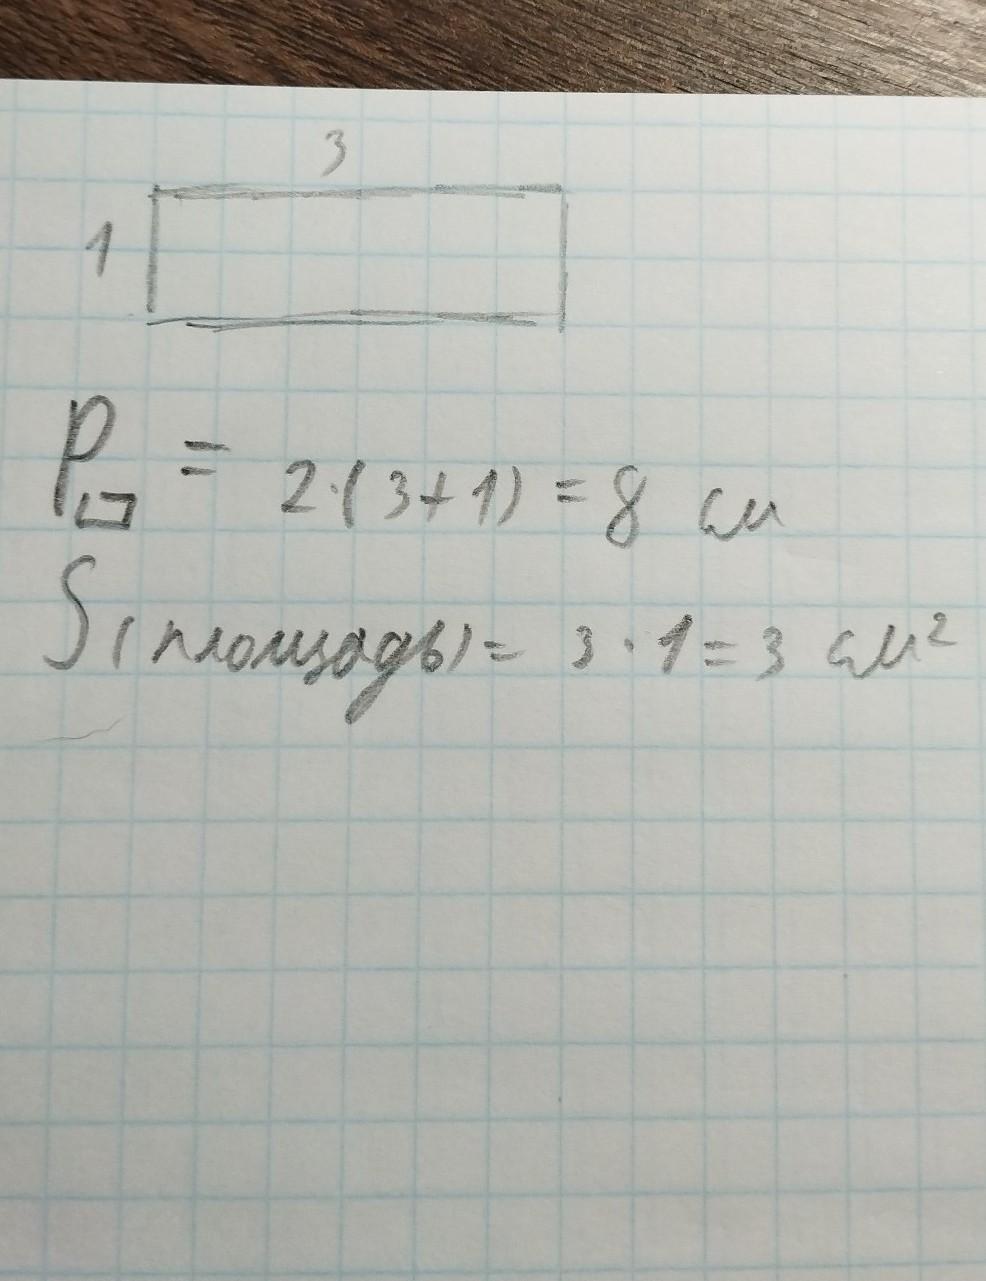 3
1
P▭ = 2·(3+1) = 8 см
S(площадь) = 3·1 = 3 см²